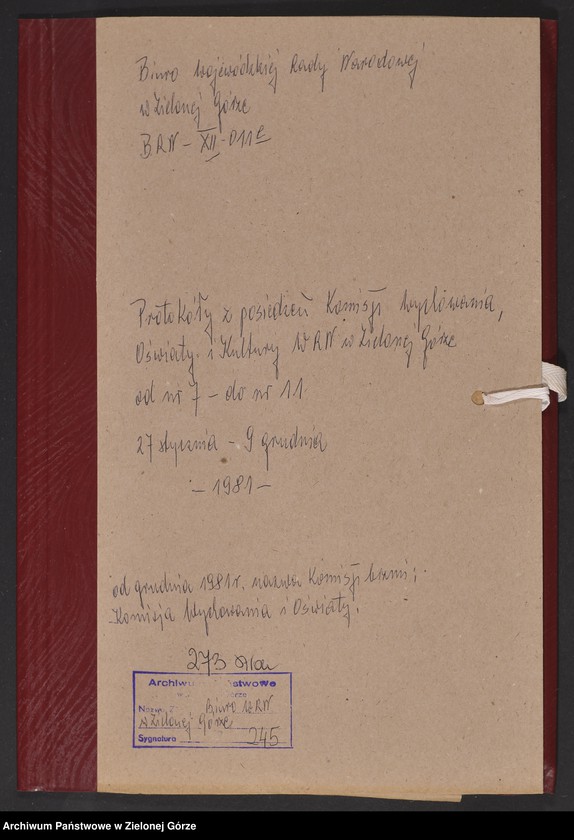 Biuro Wojewódzkiej Rady Narodowej
w Zielonej Górze
B.RN-XII-011e
Protokóły z posiedzeń Komisji Wychowania,
Oświaty i Kultury WRN w Zielonej Górze
od nr 7 - do nr 11
27 stycznia - 9 grudnia
- 1981 -
od grudnia 1981r. nazwa Komisji brzmi:
Komisja Wychowania i Oświaty.
273
Archiwum Państwowe
Biuro WRN
w Zielonej Górze
Sygnatura 245
Archiwum Państwowe w Zielonej Górze